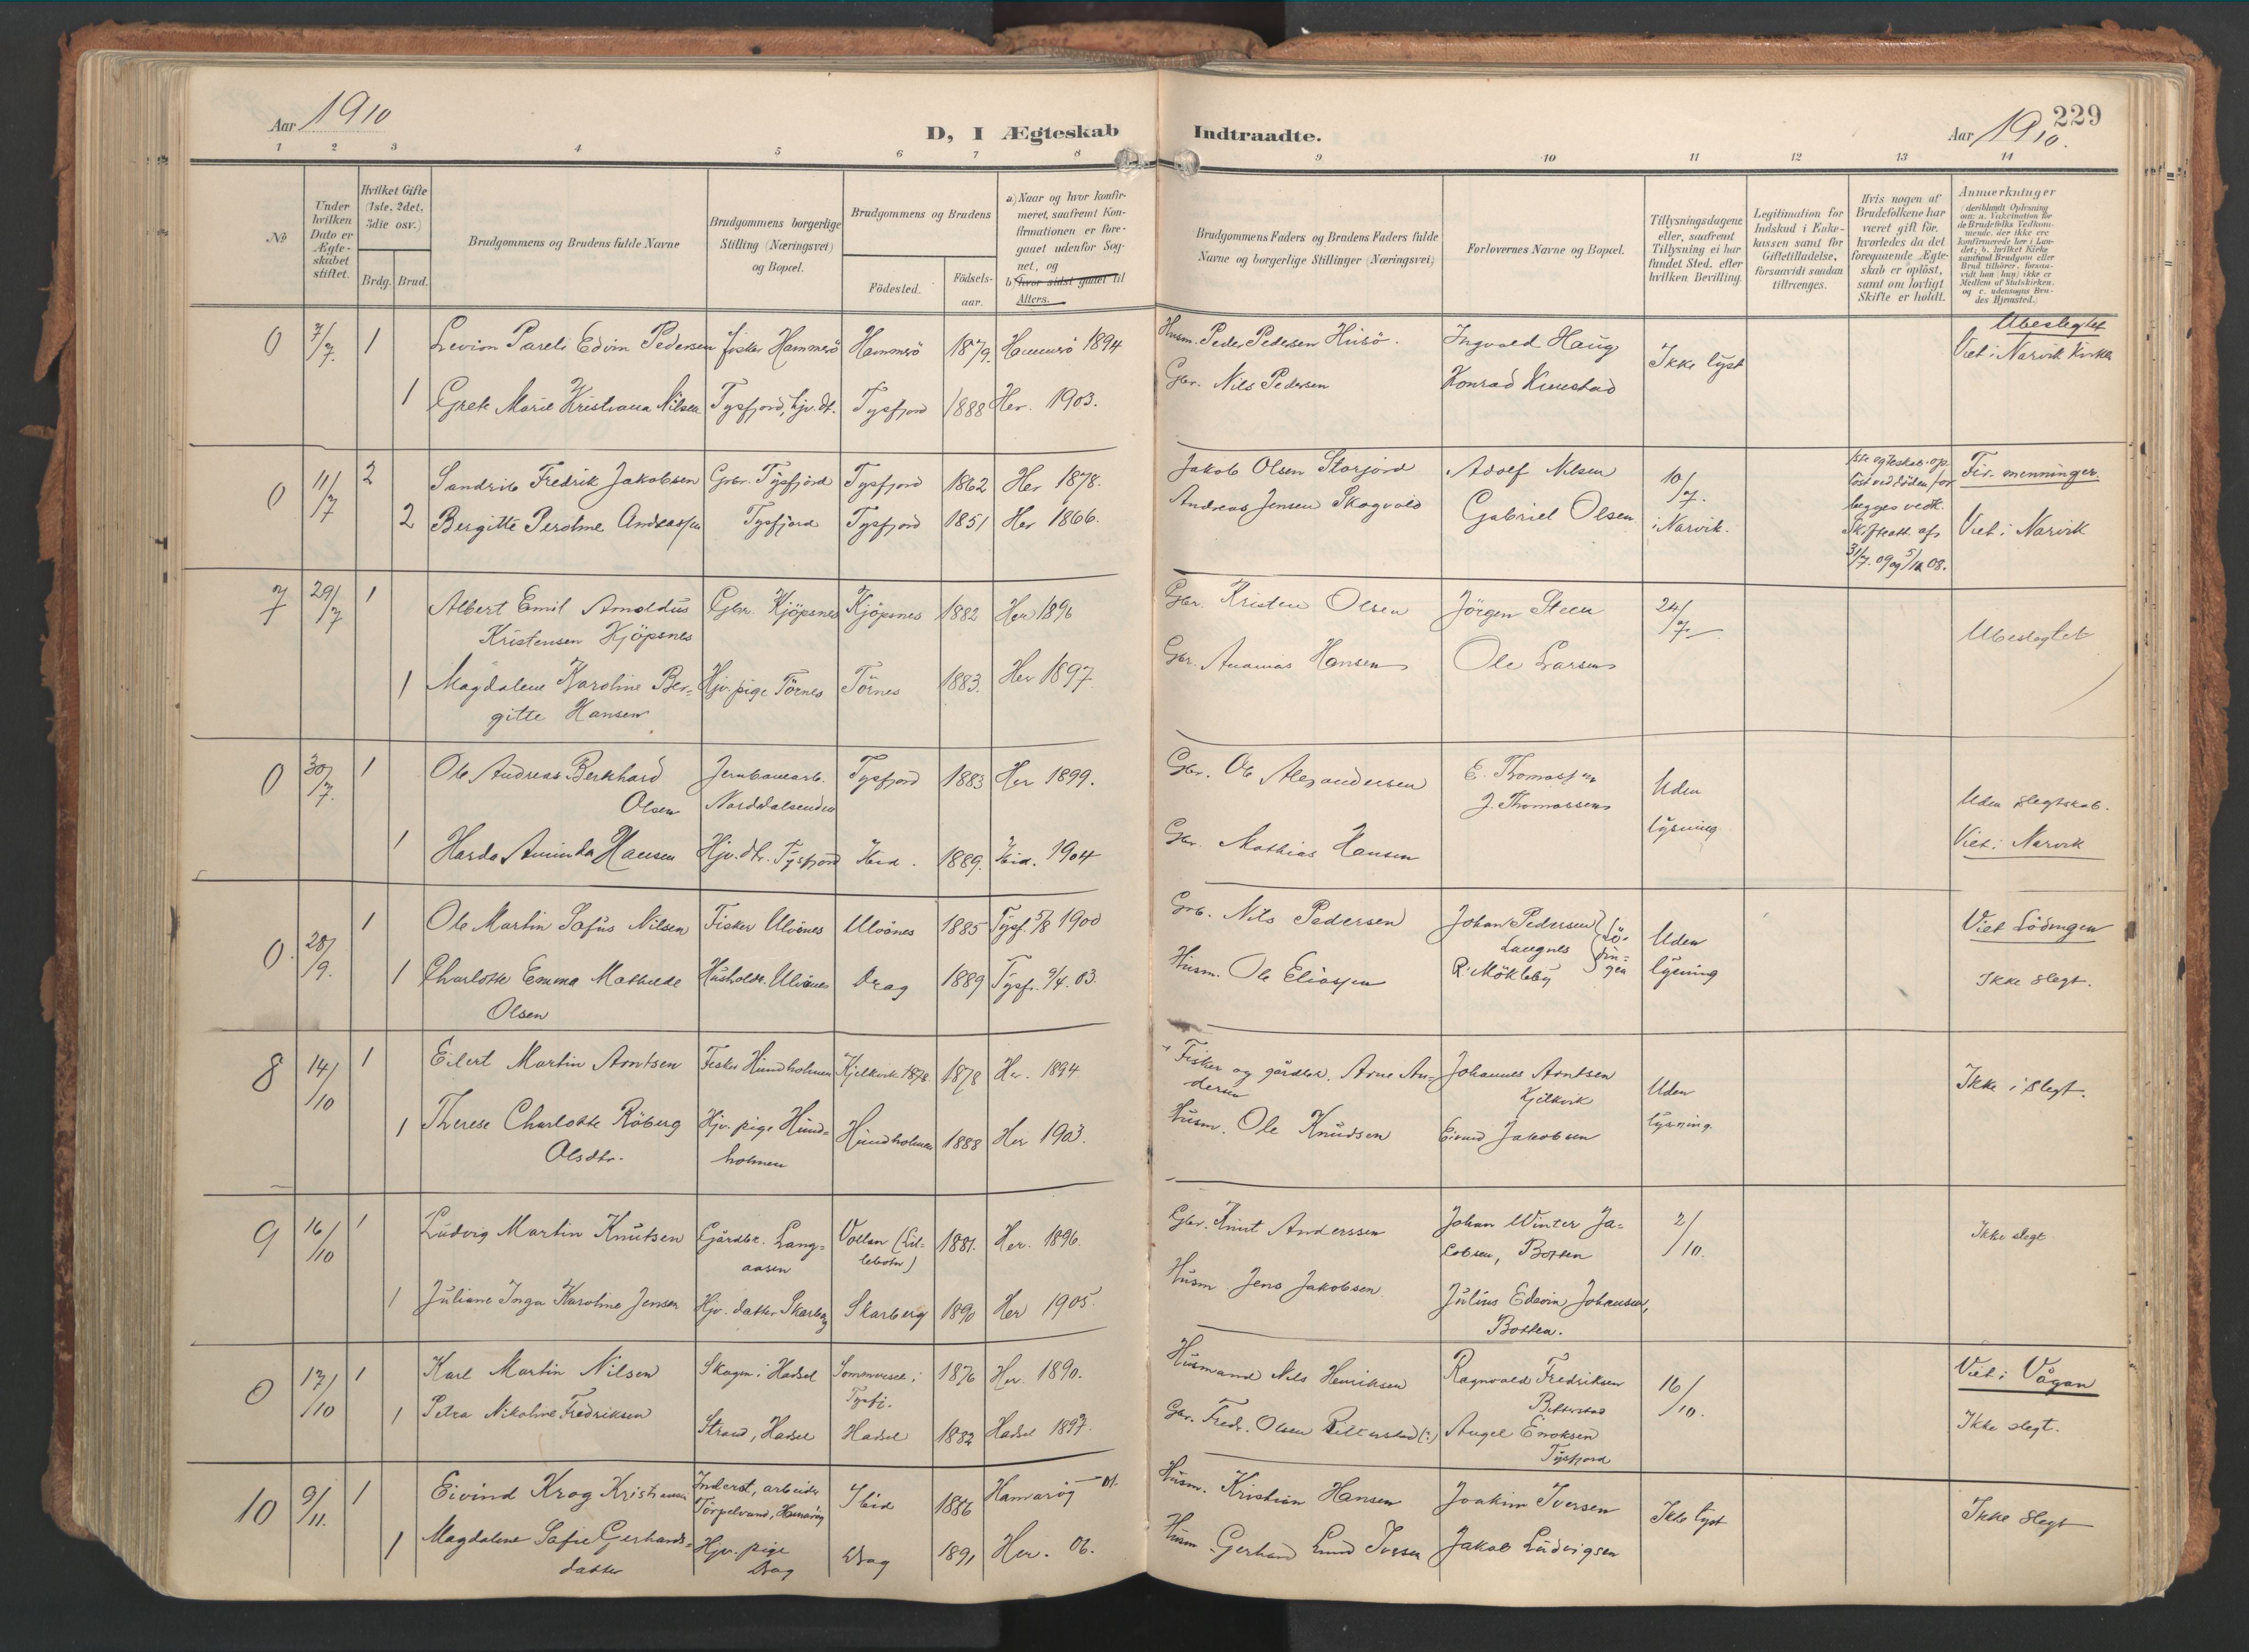 Aar 1910
D, I Ægteskab Indtraadte.
229
Aar 1910.
1 2 3 4 5 6 7 8 9 10 11 12 13 14
No
Under hvilken Dato er Ægteskabet stiftet.
Hvilket Gifte (1ste, 2det, 3die osv.)
Brdg. Brud.
Brudgommens og Brudens fulde Navne
Brudgommens borgerlige Stilling (Næringsvei) og Bopæl.
Brudgommens og Brudens
Födested.
Födselsaar.
a) Naar og hvor konfirmeret, saafremt Konfirmationen er foregaaet udenfor Sognet, og
b) hvor sidst gaaet til Alters.
Brudgommens Faders og Brudens Faders fulde Navne og borgerlige Stillinger (Næringsvei)
Forlovernes Navne og Bopæl.
Tillysningsdagene eller, saafremt Tillysning ei har fundet Sted, efter hvilken Bevilling.
Legitimation for Indskud i Enkekassen samt for Giftetilladelse, forsaavidt saadan tiltrænges.
Hvis nogen af Brudefolkene har været gift för, hvorledes da det foregaaende Ægteskab er oplöst, samt om lovligt Skifte er holdt.
Anmerkninger
(deriblandt Oplysning om: a. Vakcination for de Brudefolks Vedkommende, der ikke ere konfirmerede her i Landet; b. hvilket Kirkesamfund Brudgom eller Brud tilhörer, forsaavidt han (hun) ikke er Medlem af Statskirken, og c. udensogns Brudes Hjemsted.)
0 7/7. 1 Levion Pareli Edvin Pedersen fisker Hammerö Hammerö 1879. Hammerö 1894 Husm. Peder Pedersen Husö. Ingvald Haug Ikke lyst Ubeslegtet
Viet i Narvik Kirke
1 Grete Marie Kristiana Nilsen Tysfjord, hjv. dt. Tysfjord 1888 Her. 1903. Gbr. Nils Pedersen Konrad
0 11/7 2 Fredrik Jakobsen Grbr. Tysfjord Tysfjord 1862 Her 1878. Jakob Olsen Storjord Adolf Nilsen 10/7. i Narvik. 1ste egteskab op-
löst ved döden for
begges vedk.
Skifteatt. af
31/7. 09 og 5/12 08.
Fir-menninger.
Viet i Narvik
2 Bergitte Perolme Andreassen Tysfjord Tysfjord 1851 Her 1866. Andreas Jensen Skogvold Gabriel Olsen
7 29/7 1 Albert Emil Arnoldus
Kristensen Kjöpsnes Gbr. Kjöpsnes Kjöpsnes 1882 Her 1896 Gbr. Kristen Olsen Jörgen Steen 24/7 Ubeslegtet
1 Magdalene Karoline Ber-
gitte Hansen Hjv. pige Törnes Törnes 1883. Her 1897. Gbr. Ananias Hansen Ole Larsen
0 30/7. 1 Ole Andreas Berkhard
Olsen Jernbanearb.
Norddalsenden Tysfjord 1883 Her 1899. Gbr. Ole Alexandersen E. Thomassen
J. Thomassen Uden
lysning Uden slegtskab.
Viet i Narvik
1 Harda Aminda Hansen Hjv. dtr. Tysfjord Ibid. 1889. Ibid. 1904 Gbr. Mathias Hansen
0. 28/9. 1 Ole Martin Sofus Nilsen Fisker Ulvönes Ulvönes 1885 Tysf. 5/8 1900 Grb. Nils Pedersen Johan Pedersen
Langnes
R. Mökleby
Lö-
din-
gen Uden
lysning Viet Lödingen
Ikke slegt.
1 Charlotte Emma Mathilde
Olsen Husholdr. Ulvönes Drag 1889 Tysf. 9/4. 03. Husm. Ole Eliassen
8 14/10 1 Eilert Martin Arntsen Fisker Hundholmen Kjelkvik 1878. 1878 Her. 1894 Fisker og gårdbr. Arne An-
dersen Johannes Arntsen
Kjelkvik Uden
lysning. Ikke i slegt.
1 Therese Charlotte Röberg
Olsdtr. Hjv. pige Hund-
holmen Hundholmen 1888 Her 1903. Husm. Ole Knudsen Eivind Jakobsen
9 16/10 1 Ludvig Martin Knutsen Gårdbr. Lang-
aasen Vollan (Lil-
lebotn) 1881. Her. 1896. Gbr. Knut Anderssen Johan Winter Ja-
cobsen, Botten 2/10. Ikke slegt
1 Juliane Inga Karoline Jensen Hjv. datter Skarberg Skarberg 1890 Her 1905. Husm Jens Jakobsen Julius Edevin Johansen,
Botten.
0 17/10 1 Karl Martin Nilsen Skagen i Hadsel Sommersel i
Tysfj. 1876 Her. 1890. Husmand Nils Henriksen Ragnvald Fredriksen
Bitterstad 16/10. Viet i Vågan
1 Petra Nikoline Fredriksen Strand, Hadsel Hadsel 1882 Hadsel 1897. Gbr. Fredr. Olsen Bitterstad (?) Angel Enoksen
Tysfjord Ikke slegt.
10 9/11. 1 Eivind Krog Kristiansen Inderst, arbeider
Törpelvand, Hamarög Ibid 1886 Hamarög 01. Husm. Kristian Hansen Joakim Iversen Ikke lyst Ikke slegt
1 Magdalene Sofie Gerhards-
datter Hjv. pige
Drag Drag 1891 Her. 06. Husm. Gerhard Lund Iversen Jakob Ludvigsen